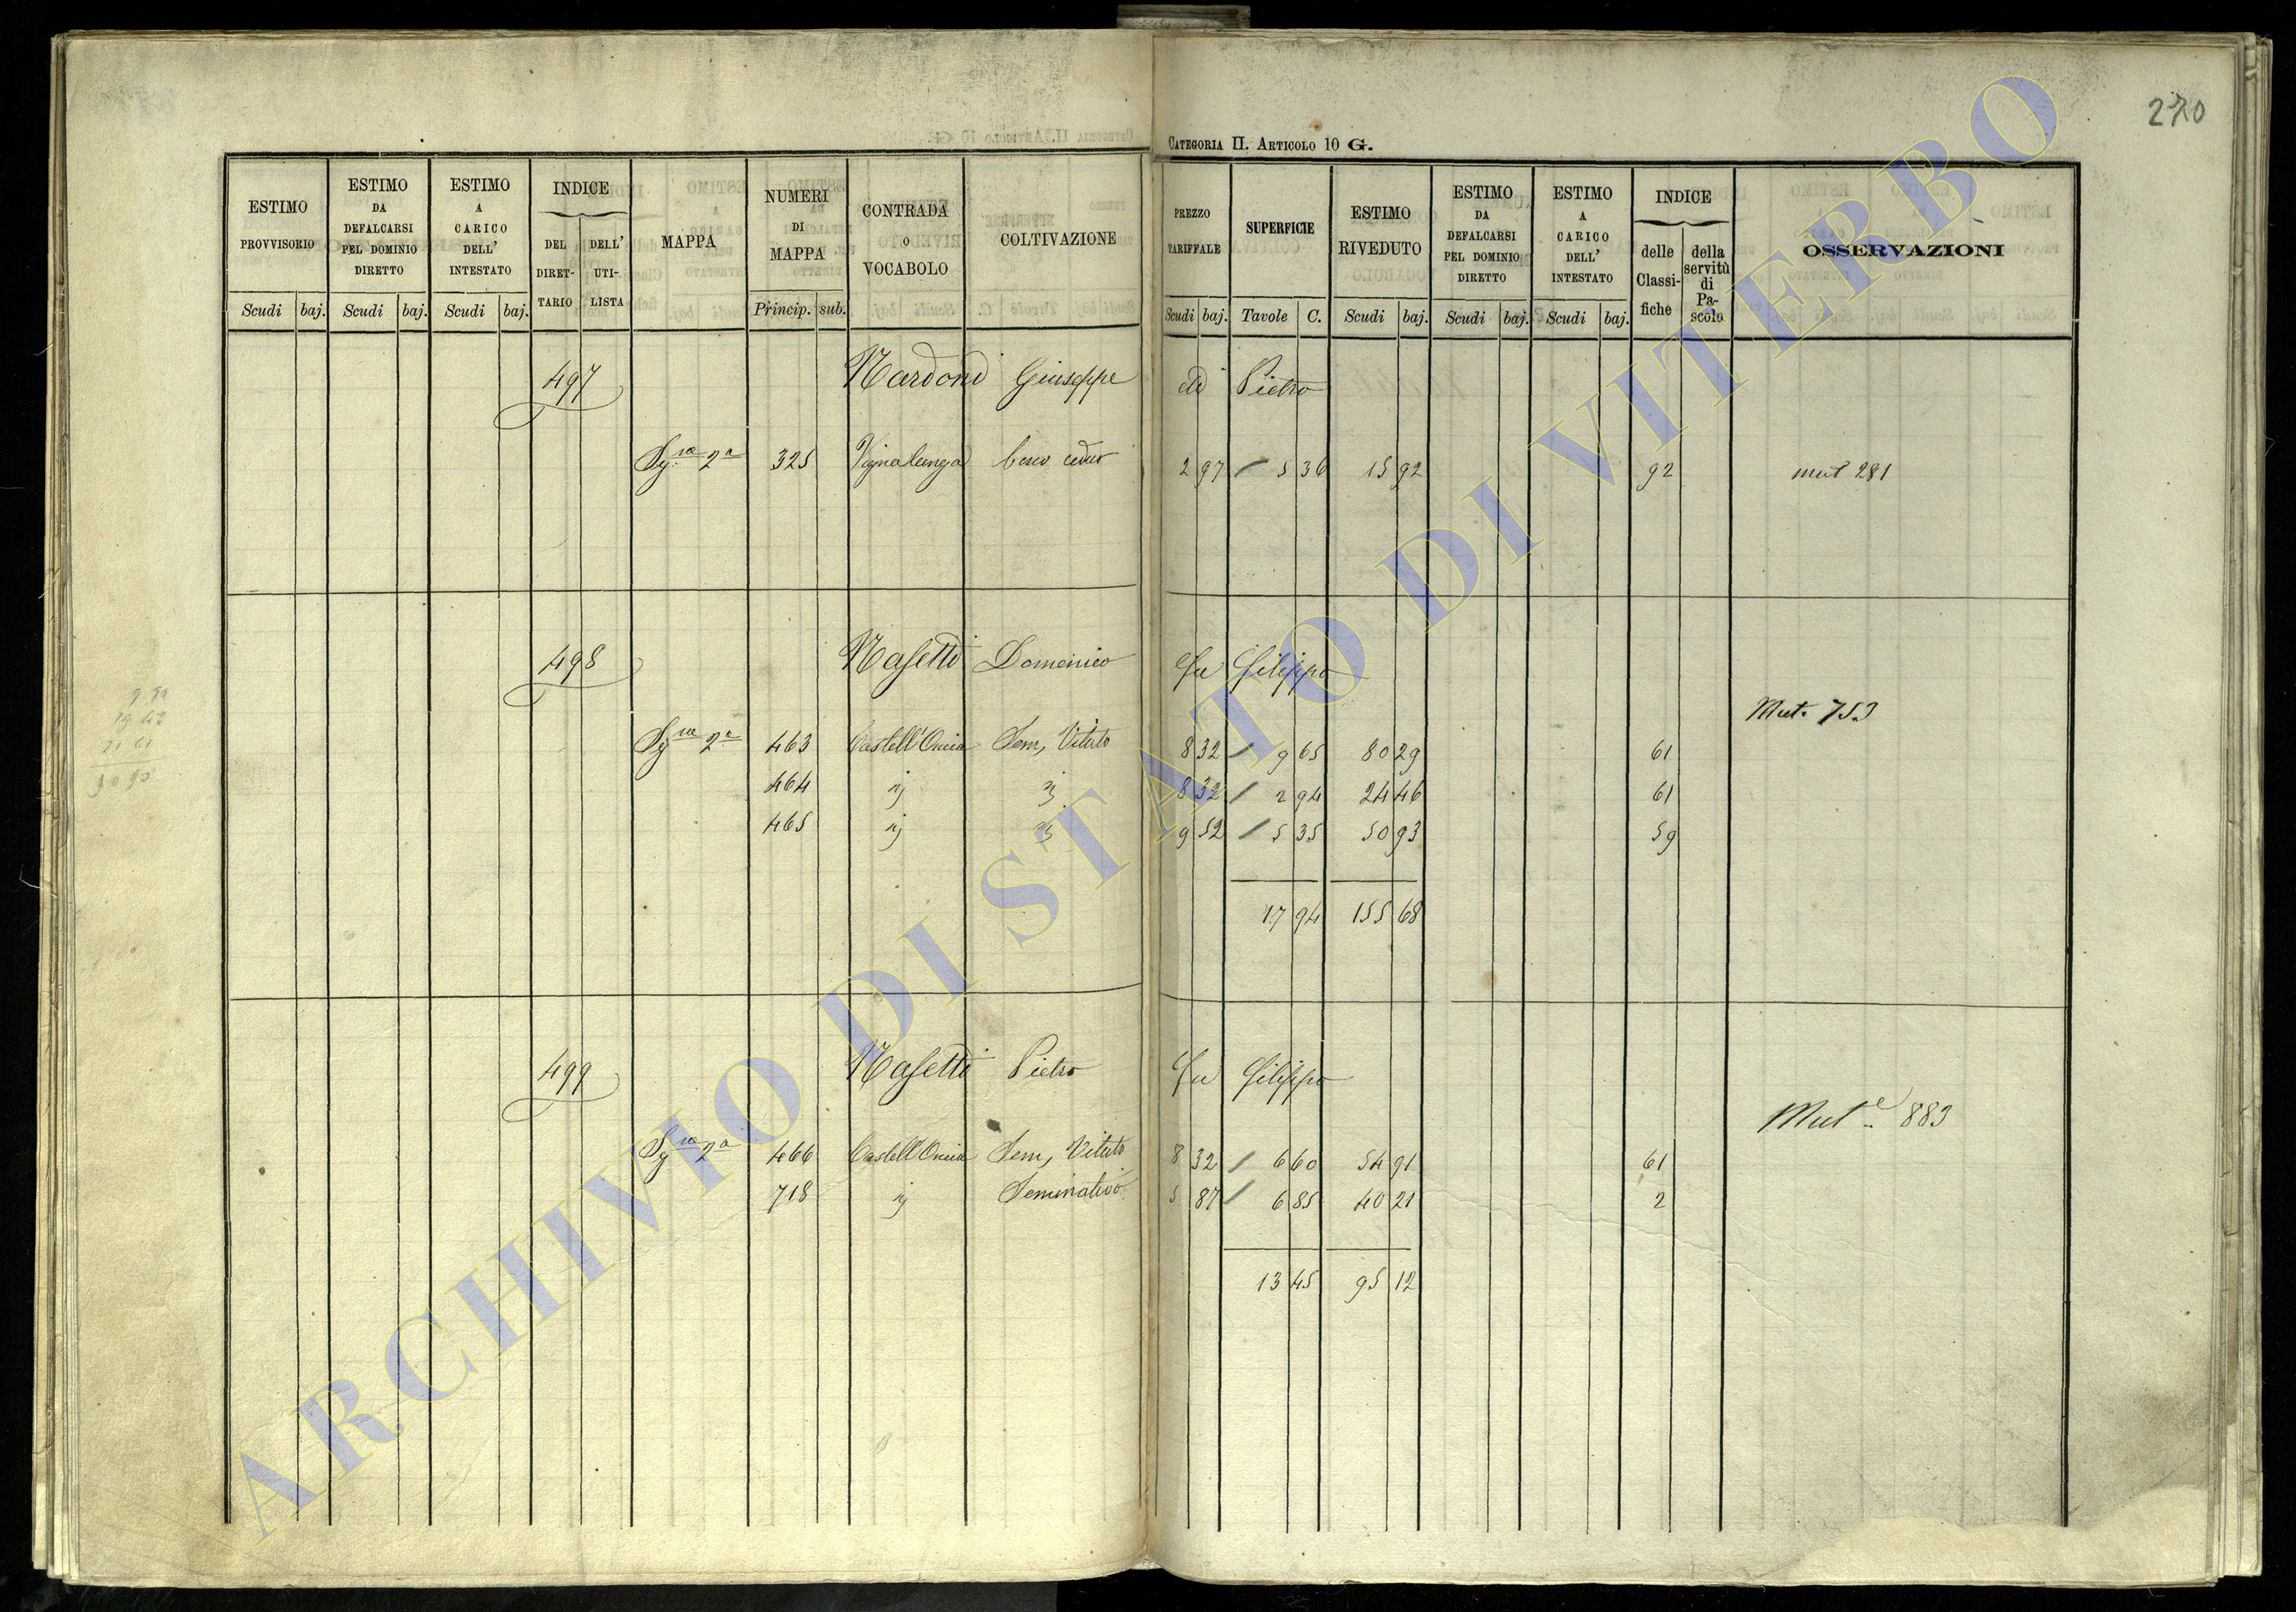 270
CATEGORIA II. ARTICOLO 10 G.
ESTIMO PROVVISORIO Scudi baj.
ESTIMO DA DEFALCARSI PEL DOMINIO DIRETTO Scudi baj.
ESTIMO A CARICO DELL' INTESTATO Scudi baj.
INDICE DEL DIRET- TARIO DELL' UTI- LISTA
MAPPA
NUMERI DI MAPPA Princip. sub.
CONTRADA O VOCABOLO
COLTIVAZIONE
PREZZO TARIFFALE Scudi baj.
SUPERFICIE Tavole C.
ESTIMO RIVEDUTO Scudi baj.
ESTIMO DA DEFALCARSI PEL DOMINIO DIRETTO Scudi baj.
ESTIMO A CARICO DELL' INTESTATO Scudi baj.
INDICE delle Classi- fiche della servitù di Pa- scolo
OSSERVAZIONI
497 Nardoni Giuseppe di Pietro
2a 325 Vignalunga bosco ceduo 2 97 / 5 36 15 92 92 mut 281
498 Nasetti Domenico fu Filippo
Mut. 753
2a 463 Sem, Vitato 8 32 / 9 65 80 29 61
464 8 32 / 2 94 24 46 61
465 9 52 / 5 35 50 93 59
17 94 155 68
499 Nasetti Pietro fu Filippo
Mut.e 883
2a 466 Sem, Vitato 8 32 / 6 60 54 91 61
718 Seminativo 5 87 / 6 85 40 21 2
13 45 95 12
ARCHIVIO DI STATO DI VITERBO